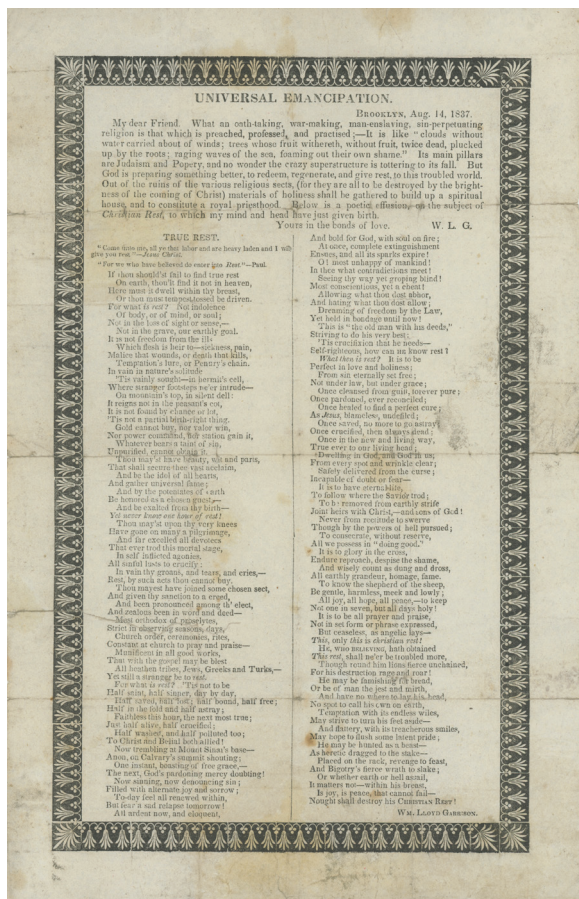 UNIVERSAL EMANCIPATION.
BROOKLYN, Aug. 14, 1837.
My dear Friend. What an oath-taking, war-making, man-enslaving, sin-perpetuating
religion is that which is preached, professed, and practised;—It is like "clouds without
water carried about of winds; trees whose fruit withereth, without fruit, twice dead, plucked
up by the roots; raging waves of the sea, foaming out their own shame." Its main pillars
are Judaism and Popery, and no wonder the crazy superstructure is tottering to its fall. But
God is preparing something better, to redeem, regenerate, and give rest, to this troubled world.
Out of the ruins of the various religious sects, (for they are all to be destroyed by the bright-
ness of the coming of Christ) materials of holiness shall be gathered to build up a spiritual
house, and to constitute a royal priesthood. Below is a poetic effusion, on the subject of
Christian Rest, to which my mind and head have just given birth.
Yours in the bonds of love. W. L. G.
TRUE REST.
"Come unto me, all ye that labor and are heavy laden and I will
give you rest."—Jesus Christ.
"For we who have believed do enter into Rest."—Paul.
If thou should'st fail to find true rest
On earth, thou'lt find it not in heaven,
Here must it dwell within thy breast,
Or thou must tempest tossed be driven.
For what is rest? Not indolence
Of body, or of mind, or soul;
Not in the loss of sight or sense,—
Not in the grave, our earthly goal.
It is not freedom from the ills
Which flesh is heir to—sickness, pain,
Malice that wounds, or death that kills,
Temptation's lure, or Penury's chain.
In vain in nature's solitude
'Tis vainly sought—in hermit's cell,
Where stranger footsteps ne'er intrude—
On mountain's top, in silent dell:
It reigns not in the peasant's cot,
It is not found by chance or lot,
'Tis not a partial birth-right thing.
Gold cannot buy, nor valor win,
Nor power command, nor station gain it,
Whatever bears a taint of sin,
Unpurified, cannot obtain it.
Thou may'st have beauty, wit and parts,
That shall secure thee vast acclaim,
And be the idol of all hearts,
And gather universal fame;
And by the potentates of earth
Be honored as a chosen guest,—
And be exalted from thy birth—
Yet never know one hour of rest!
Thou may'st upon thy very knees
Have gone on many a pilgrimage,
And far excelled all devotees
That ever trod this mortal stage,
In self inflicted agonies.
All sinful lusts to crucify;
In vain thy groans, and tears, and cries,—
Rest, by such acts thou cannot buy.
Thou mayest have joined some chosen sect,
And given thy sanction to a creed,
And been pronounced among th' elect,
And zealous been in word and deed—
Most orthodox of proselytes,
Strict in observing seasons, days,
Church order, ceremonies, rites,
Constant at church to pray and praise—
Munificent in all good works,
That with the gospel may be blest
All heathen tribes, Jews, Greeks and Turks,—
Yet still a stranger be to rest.
For what is rest? 'Tis not to be
Half saint, half sinner, day by day,
Half saved, half lost; half bound, half free;
Half in the fold and half astray;
Faithless this hour, the next most true;
Just half alive, half crucified;
Half washed, and half polluted too;
To Christ and Belial both allied!
Now trembling at Mount Sinai's base—
Anon, on Calvary's summit shouting;
One instant, boasting of free grace,—
The next, God's pardoning mercy doubting!
Now sinning, now denouncing sin;
Filled with alternate joy and sorrow;
To-day feel all renewed within,
But fear a sad relapse tomorrow!
All ardent now, and eloquent,
And bold for God, with soul on fire;
At once, complete extinguishment
Ensues, and all its sparks expire!
O! most unhappy of mankind!
In thee what contradictions meet!
Seeing thy way yet groping blind!
Most conscientious, yet a cheat!
Allowing what thou dost abhor,
And hating what thou dost allow;
Dreaming of freedom by the Law,
Yet held in bondage until now!
This is "the old man with his deeds,"
Striving to do his very best;
'Tis crucifixion that he needs—
Self-righteous, how can he know rest!
What then is rest? It is to be
Perfect in love and holiness;
From sin eternally set free;
Not under law, but under grace;
Once cleansed from guilt, forever pure;
Once pardoned, ever reconciled;
Once healed to find a perfect cure;
As Jesus, blameless, undefiled;
Once saved, no more to go astray;
Once crucified, then always dead;
Once in the new and living way,
True ever to our living head;
Dwelling in God, and God in us;
From every spot and wrinkle clear;
Safely delivered from the curse;
Incapable of doubt or fear—
It is to have eternal life,
To follow where the Savior trod;
To be removed from earthly strife
Joint heirs with Christ,—and sons of God!
Never from rectitude to swerve
Though by the powers of hell pursued;
To consecrate, without reserve,
All we possess in "doing good."
It is to glory in the cross,
Endure reproach, despise the shame,
And wisely count as dung and dross,
All earthly grandeur, homage, fame.
To know the shepherd of the sheep,
Be gentle, harmless, meek and lowly;
All joy, all hope, all peace,—to keep
Not one in seven, but all days holy!
It is to be all prayer and praise,
Not in set form or phrase expressed,
But ceaseless, as angelic lays—
This, only this is christian rest!
HE, WHO BELIEVES, hath obtained
This rest, shall ne'er be troubled more,
Though round him lions fierce unchained,
For his destruction rage and roar!
He may be famishing for bread,
Or be of man the jest and mirth,
And have no where to lay his head,
No spot to call his own on earth,
Temptation with its endless wiles,
May strive to turn his feet aside—
And flattery, with its treacherous smiles,
May hope to flush some latent pride;
He may be hunted as a beast—
As heretic dragged to the stake—
Placed on the rack, revenge to feast,
And Bigotry's fierce wrath to slake;
Or whether earth or hell assail,
It matters not—within his breast,
Is joy, is peace, that cannot fail—
Nought shall destroy his CHRISTIAN REST!
WM. LLOYD GARRISON.